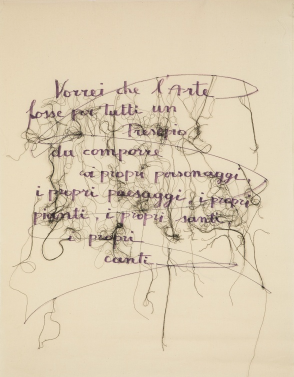 Vorrei che l'Arte
fosse per tutti un
Presepio
da comporre
ai propri personaggi
i propri paesaggi, i propri
pianti, i propri santi
i propri
canti